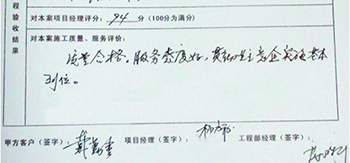 程验收结果
对本案项目经理评分： 94 分（100分为满分）
对本案施工质量、服务评价：
质量合格。服务态度好，
到位。
甲方客户（签字）： 项目经理（签字）： 工程部经理（签字）：